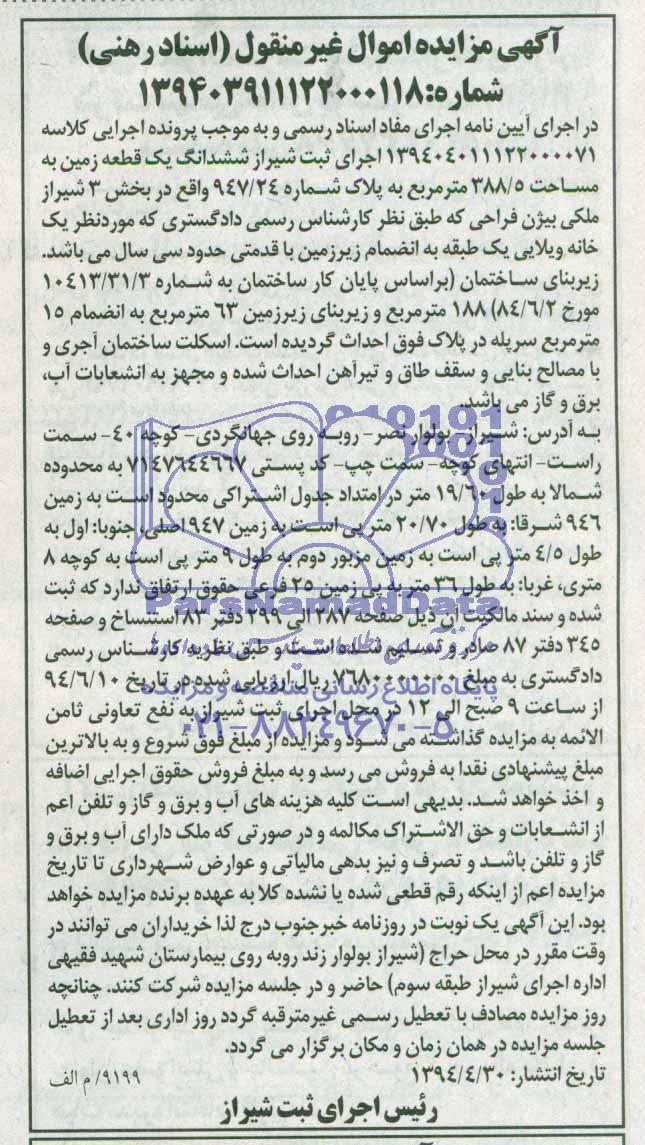 آگهی مزایده اموال غیر منقول (اسناد رهنی)
شماره: ۱۳۹۴۰۳۹۱۱۱۲۲۰۰۰۱۱۸
در اجرای آیین نامه اجرای مفاد اسناد رسمی و به موجب پرونده اجرایی کلاسه
۱۳۹۴۰۴۰۱۱۱۲۲۰۰۰۰۷۱ اجرای ثبت شیراز ششدانگ یک قطعه زمین به
مساحت ۳۸۸/۵ مترمربع به پلاک شماره ۹۴۷/۲۴ واقع در بخش ۳ شیراز
ملکی بیژن فراحی که طبق نظر کارشناس رسمی دادگستری که موردنظر یک
خانه ویلایی یک طبقه به انضمام زیرزمین با قدمتی حدود سی سال می باشد.
زیربنای ساختمان (براساس پایان کار ساختمان به شماره ۱۰۴۱۳/۳۱/۳
مورخ ۸۴/۶/۲) ۱۸۸ مترمربع و زیربنای زیرزمین ۶۳ مترمربع به انضمام ۱۵
مترمربع سرپله در پلاک فوق احداث گردیده است. اسکلت ساختمان آجری و
با مصالح بنایی و سقف طاق و تیرآهن احداث شده و مجهز به انشعابات آب،
برق و گاز می باشد.
به آدرس: شیراز- بولوار نصر- روبه روی جهانگردی- کوچه ۴۰- سمت
راست- انتهای کوچه- سمت چپ- کد پستی ۷۱۴۷۶۴۴۶۶۷ به محدوده
شمالا به طول ۱۹/۶۰ متر در امتداد جدول اشتراکی محدود است به زمین
۹۴۶ شرقا: به طول ۲۰/۷۰ متر پی است به زمین ۹۴۷ اصلی، جنوبا: اول به
طول ۴/۵ متر پی است به زمین مزبور دوم به طول ۹ متر پی است به کوچه ۸
متری، غربا: به طول ۳۶ متر به پی زمین ۲۵ فرعی حقوق ارتفاق ندارد که ثبت
شده و سند مالکیت آن ذیل صفحه ۲۸۷ الی ۲۹۹ دفتر ۸۳ استنساخ و صفحه
۳۴۵ دفتر ۸۷ صادر و تسلیم شده است و طبق نظریه کارشناس رسمی
دادگستری به مبلغ ۷۶۸۰۰۰۰۰۰۰ ریال ارزیابی شده در تاریخ ۹۴/۶/۱۰
از ساعت ۹ صبح الی ۱۲ در محل اجرای ثبت شیراز به نفع تعاونی ثامن
الائمه به مزایده گذاشته می شود و مزایده از مبلغ فوق شروع و به بالاترین
مبلغ پیشنهادی نقدا به فروش می رسد و به مبلغ فروش حقوق اجرایی اضافه
و اخذ خواهد شد. بدیهی است کلیه هزینه های آب و برق و گاز و تلفن اعم
از انشعابات و حق الاشتراک مکالمه و در صورتی که ملک دارای آب و برق و
گاز و تلفن باشد و تصرف و نیز بدهی مالیاتی و عوارض شهرداری تا تاریخ
مزایده اعم از اینکه رقم قطعی شده یا نشده کلا به عهده برنده مزایده خواهد
بود. این آگهی یک نوبت در روزنامه خبرجنوب درج لذا خریداران می توانند در
وقت مقرر در محل حراج (شیراز بولوار زند روبه روی بیمارستان شهید فقیهی
اداره اجرای شیراز طبقه سوم) حاضر و در جلسه مزایده شرکت کنند. چنانچه
روز مزایده مصادف با تعطیل رسمی غیرمترقبه گردد روز اداری بعد از تعطیل
جلسه مزایده در همان زمان و مکان برگزار می گردد.
تاریخ انتشار: ۱۳۹۴/۴/۳۰ ۹۱۹۹/ م الف
رئیس اجرای ثبت شیراز
ParsNamadData
پایگاه اطلاع رسانی مناقصه و مزایده
۰۲۱-۸۸۳۴۹۶۷۰-۵